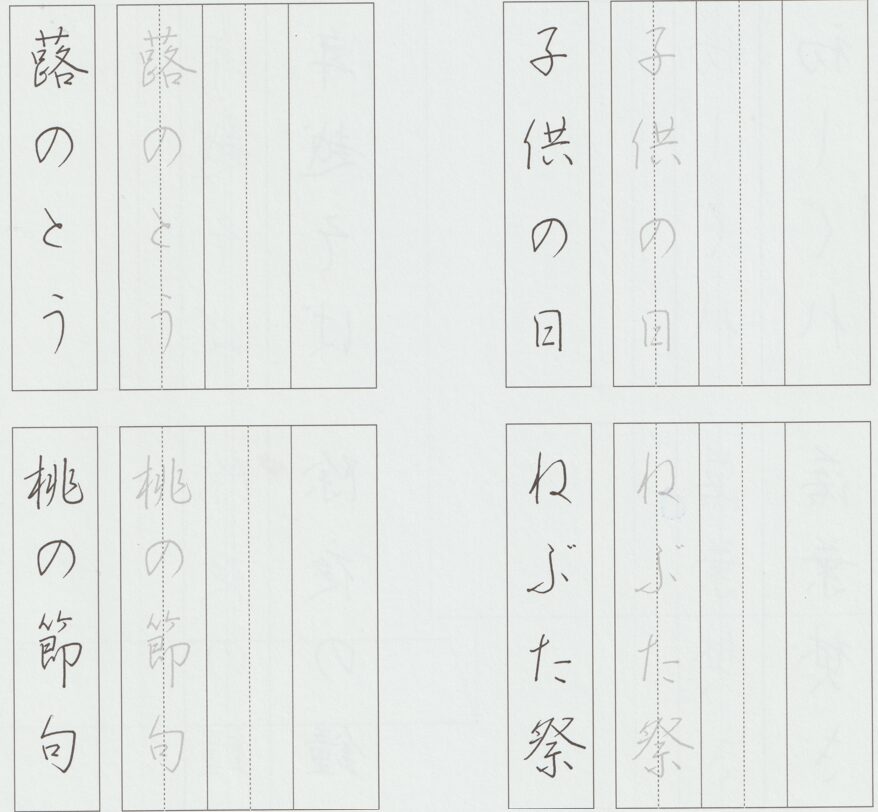 子供の日
子供の日
蕗のとう
蕗のとう
ねぶた祭
ねぶた祭
桃の節句
桃の節句